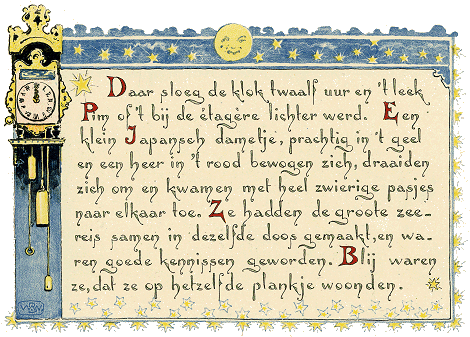 Daar sloeg de klok twaalf uur en 't leek
Pim of 't bij de étagère lichter werd. Een
klein Japansch dametje, prachtig in 't geel
en een heer in 't rood bewogen zich, draaiden
zich om en kwamen met heel zwierige pasjes
naar elkaar toe. Ze hadden de groote zee-
reis samen in dezelfde doos gemaakt, en wa-
ren goede kennissen geworden. Blij waren
ze, dat ze op hetzelfde plankje woonden.